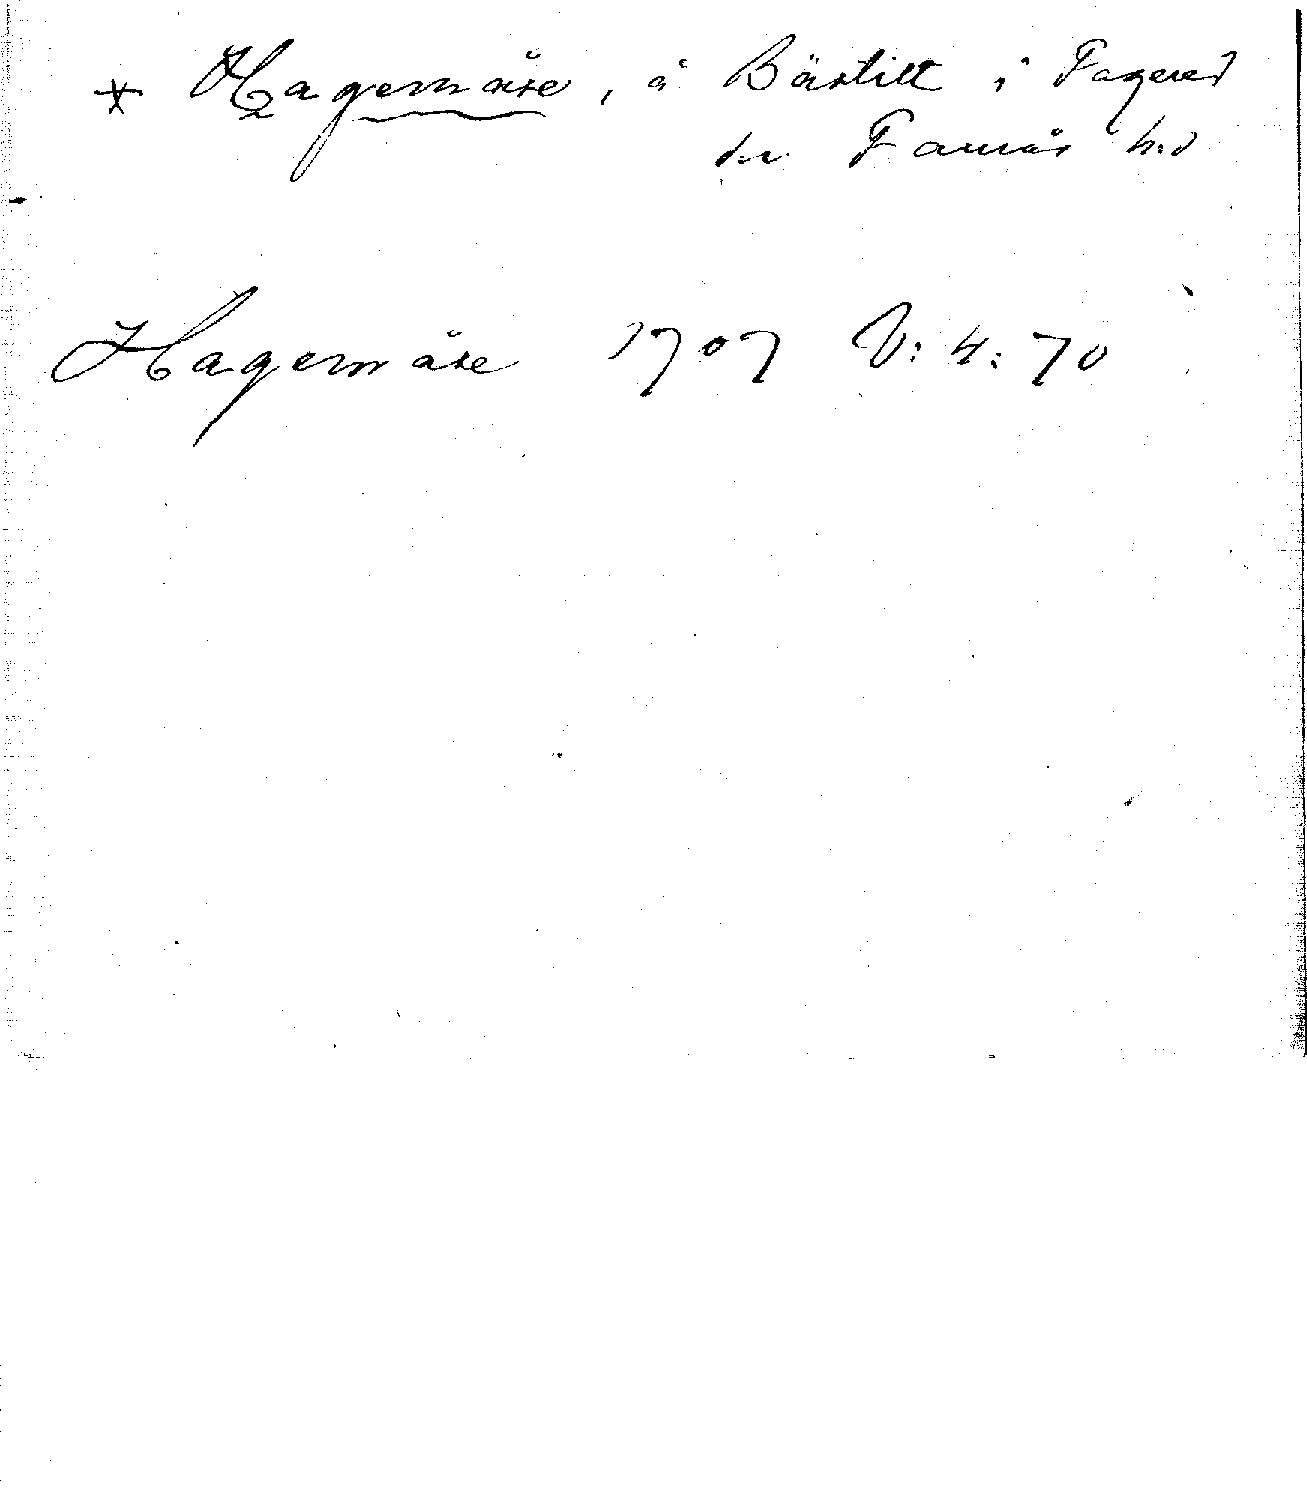 * Hagemåse, å Bästilt i Fagered
sn Faurås hd
Hagemåse 1707 V: 4: 70